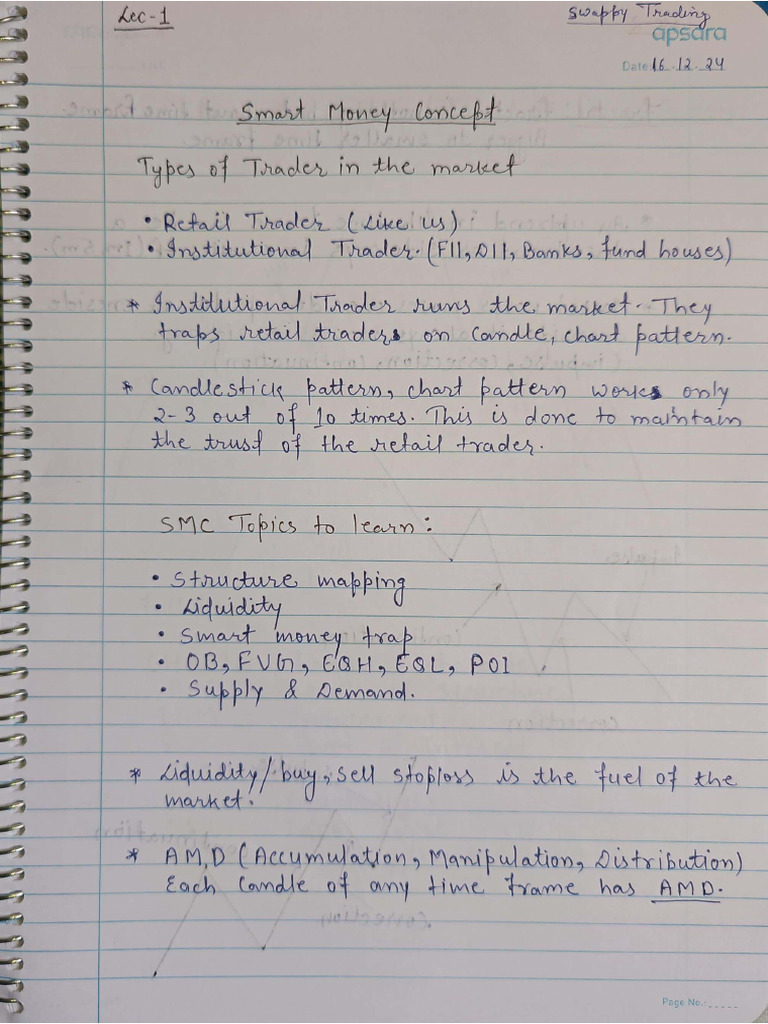 Lec-1
Swappy Trading
apsara
Date: 16.12.24
Smart Money Concept
Types of Trader in the market
• Retail Trader (Like us)
• Institutional Trader. (FII, DII, Banks, fund houses)
* Institutional Trader runs the market. They
traps retail traders on candle, chart pattern.
* Candlestick pattern, chart pattern works only
2-3 out of 10 times. This is done to maintain
the trust of the retail trader.
SMC Topics to learn:
• Structure mapping
• Liquidity
• Smart money trap
• OB, FVG, EQH, EQL, POI
• Supply & Demand.
* Liquidity/buy, sell stoploss is the fuel of the
market.
* AM,D (Accumulation, Manipulation, Distribution)
Each Candle of any time frame has AMD.
Page No.: